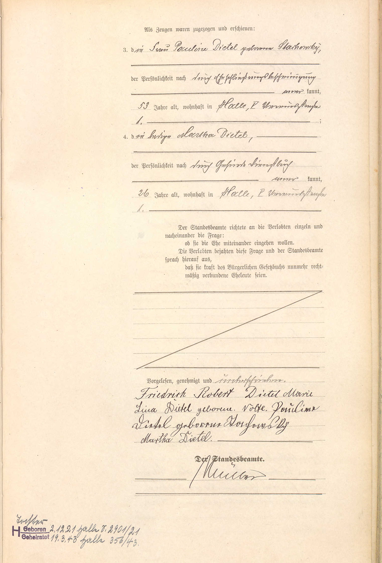 Als Zeugen waren zugezogen und erschienen:
3. die Frau Pauline Dietel geborene
der Persönlichkeit nach durch Eheschließungsbescheinigung
kannt,
53 Jahre alt, wohnhaft in Halle,
1. ;
4. die ledige Martha Dietel,
der Persönlichkeit nach durch Gesinde Dienstbuch
kannt,
26 Jahre alt, wohnhaft in Halle,
1.
Der Standesbeamte richtete an die Verlobten einzeln und
nacheinander die Frage:
ob sie die Ehe miteinander eingehen wollen.
Die Verlobten bejahten diese Frage und der Standesbeamte
sprach hierauf aus,
daß sie kraft des Bürgerlichen Gesetzbuchs nunmehr recht-
mäßig verbundene Eheleute seien.
Vorgelesen, genehmigt und unterschrieben
Friedrich Robert Dietel Marie
Lina Dietel geborene Nolte, Pauline
Dietel geborene
Martha Dietel.
Der Standesbeamte.
Müller
Tochter
H Geboren 2.12.21 Halle I. 2961/21
Geheiratet 19.3.43 Halle 356/43